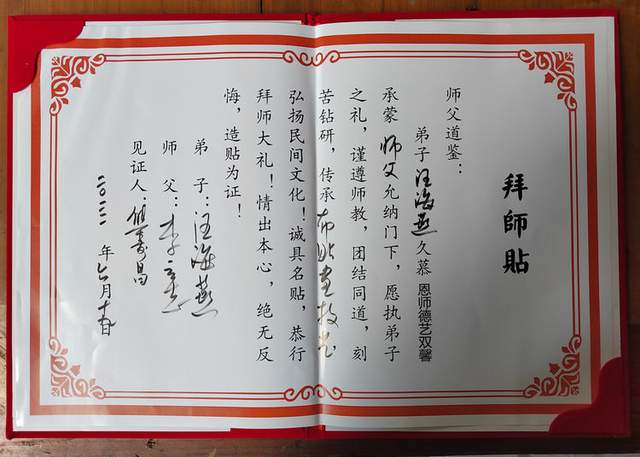 拜師貼
师父道鉴：
弟子汪海燕久慕恩师德艺双馨
承蒙师父允纳门下，愿执弟子
之礼，谨遵师教，团结同道，刻
苦钻研，传承布贴画技艺
弘扬民间文化！诚具名贴，恭行
拜师大礼！情出本心，绝无反
悔，造贴为证！
弟子：汪海燕
师父：李
见证人：昌
二〇二二年六月十九日